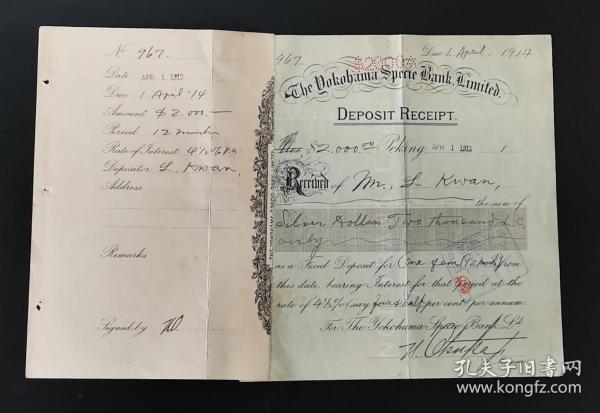 No 967.
Date APR 1 1913
Due 1 April '14
Amount $2,000.—
Period 12 months
Rate of Interest 4½% p.a.
Depositor L. Kwan,
Address
Remarks
Signed by
967. Due 1 April, 1914
The Yokohama Specie Bank Limited.
DEPOSIT RECEIPT.
$2,000.00 Peking, APR 1 1913 1
Received of Mr., L. Kwan,
the sum of
Silver Dollars Two thousand
only
as a Fixed Deposit for One year (12 mos) from
this date, bearing Interest for that period at the
rate of 4½% (say four & half per cent) per annum.
For The Yokohama Specie Bank, Ld
孔夫子旧书网
www.kongfz.com